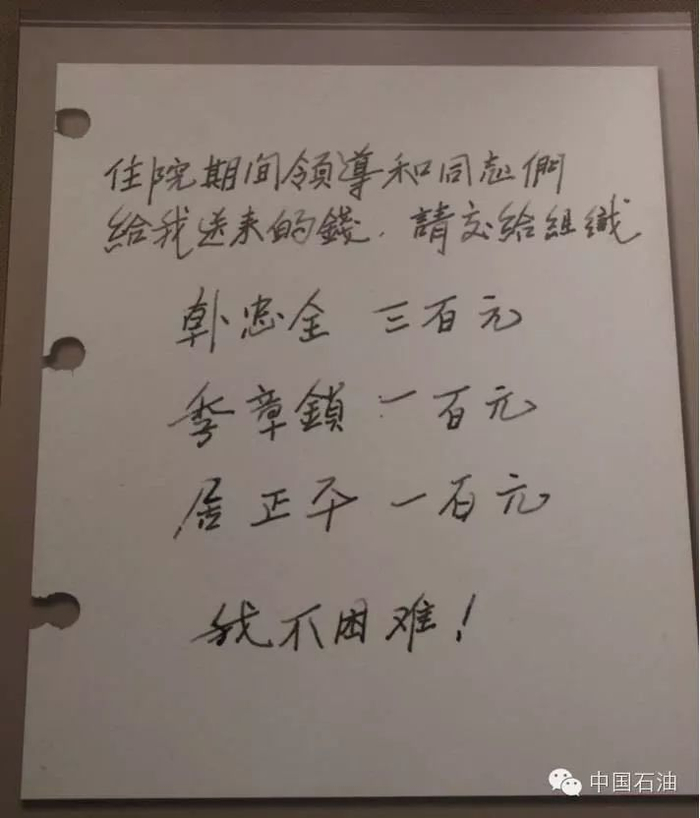 住院期间領導和同志們
給我送来的錢．請交給組織
韩忠全 三百元
季章鎖 一百元
居正平 一百元
我不困难！
中国石油